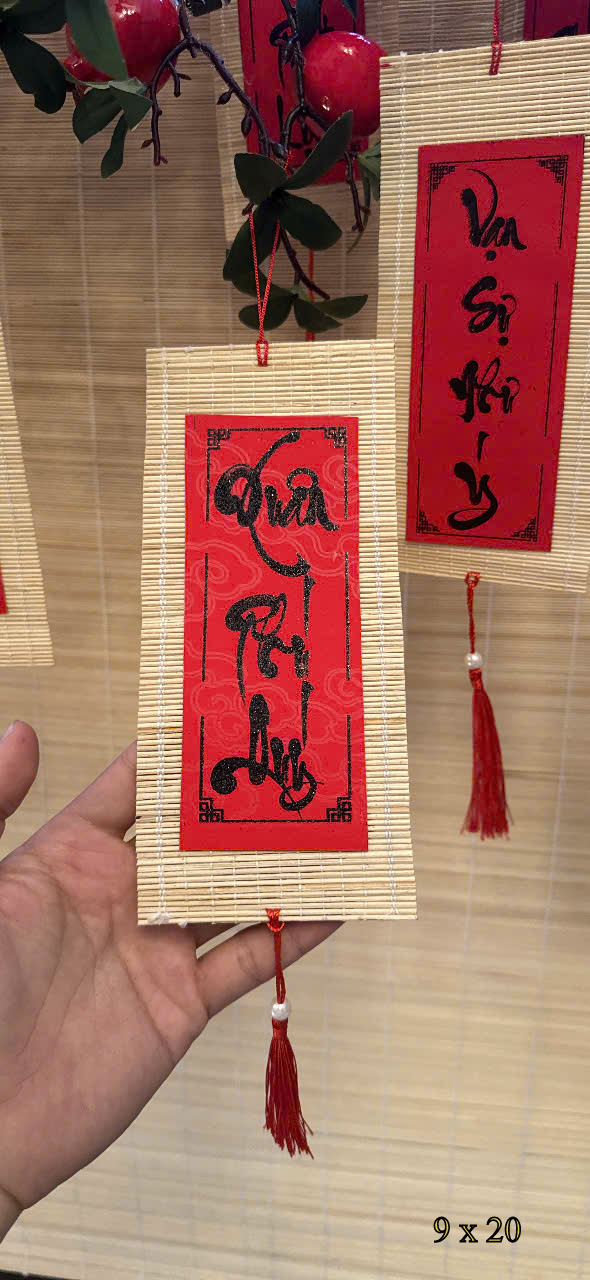 Xuân
Phú
Quý
Vạn
Sự
Như
Ý
9 x 20